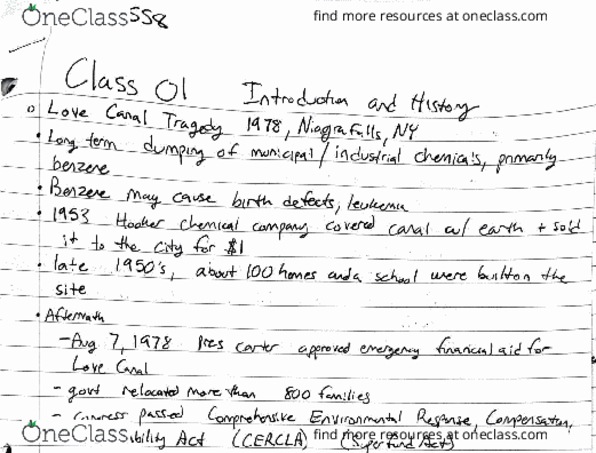 OneClass 558
find more resources at oneclass.com
Class 01 Introduction and History
Love Canal Tragedy 1978, Niagra Falls, NY
• Long term dumping of municipal/industrial chemicals, primarily
benzene
• Benzene may cause birth defects, leukemia
• 1953 Hooker chemical company covered canal w/ earth + sold
it to the city for $1
• late 1950's, about 100 homes and a school were built on the
site
• Aftermath
- Aug 7, 1978 Pres carter approved emergency financial aid for
Love Canal
- govt relocated more than 800 families
- congress passed Comprehensive Environmental Response, Compensation,
OneClass bility Act (CERCLA) (Superfund Act)
find more resources at oneclass.com